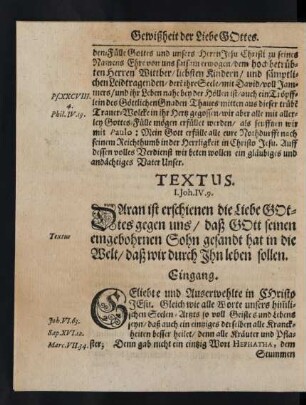 Gewißheit der Liebe GOttes.
dem Fülle Gottes und unsers HErrn JEsu Christi zu seines
Namens Ehre von uns
Pf. XXCVIII
4.
Phil. IV. 19.
ten Herren Wittber / liebsten Kindern / und sämptli-
chen Leidtragenden / derl ihre Seele / mit David / voll Jam-
mers / und ihr Leben nahe bey der Höllen ist / auch ein Tröpff-
lein des Göttlichen Gnaden Thaues mitten aus dieser trübe
Trauer-Wolcke in ihr Hertz gegossen / wir aber alle mit aller-
ley Gottes-Fülle mögen erfüllet werden / als seufftzen wir
mit Paulo: Mein Gott erfülle alle eure Nothdurfft nach
seinem Reichthumb in der Herrligkeit in Christo Jesu. Auff
dessen volles Verdienst wir beten wollen ein gläubiges und
andächtiges Vater Unser.
TEXTUS.
I. Joh. IV. 9.
Textus
DAran ist erschienen die Liebe GOt-
tes gegen uns / daß GOtt seinen
eingebohrnen Sohn gesandt hat in die
Welt / daß wir durch Jhn leben sollen.
Eingang.
GEliebte und Auserwehlte in CHristo
JEsu. Gleich wie alle Worte unsers himli-
schen Seelen-Artzts so voll Geistes und Lebens
Joh. VI. 63.
seyn / daß auch ein einniges derselben alle Kranck-
Sap. XVI. 12.
heiten besser heilet / denn alle Kräuter und Pfla-
Marc. VII. 34.
ster; Denn gab nicht ein eintzig Wort HEPHATHA, dem
Stummen